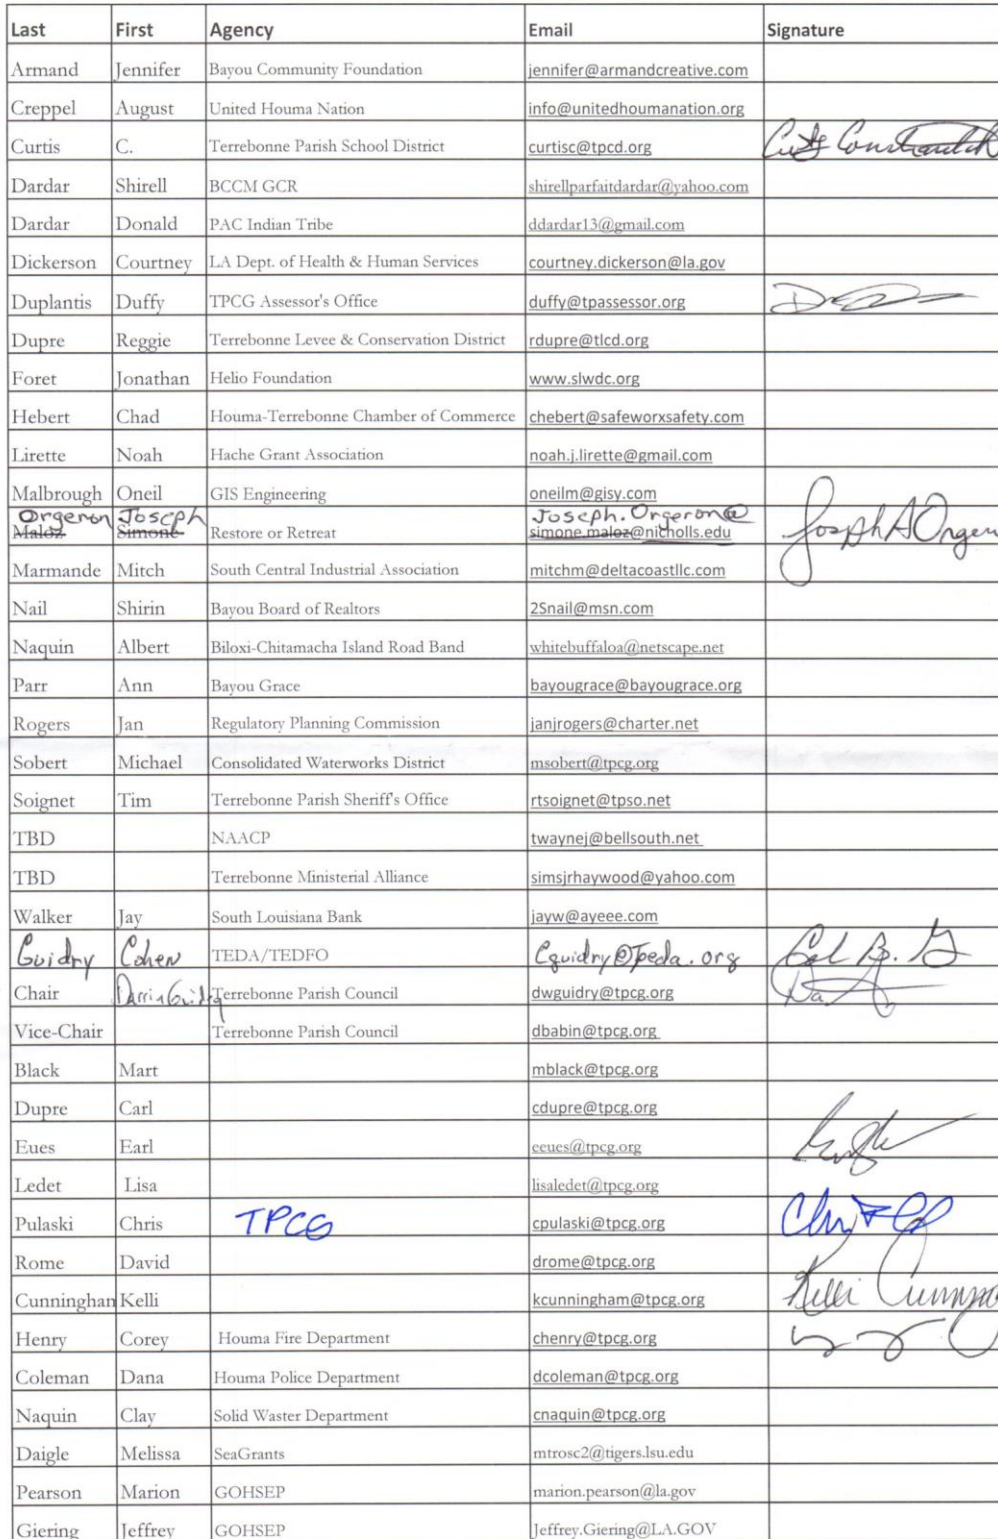 Last First Agency Email Signature
Armand Jennifer Bayou Community Foundation jennifer@armandcreative.com
Creppel August United Houma Nation info@unitedhoumanation.org
Curtis C. Terrebonne Parish School District curtisc@tpcd.org
Dardar Shirell BCCM GCR shirellparfaitdardar@yahoo.com
Dardar Donald PAC Indian Tribe ddardar13@gmail.com
Dickerson Courtney LA Dept. of Health & Human Services courtney.dickerson@la.gov
Duplantis Duffy TPCG Assessor's Office duffy@tpassessor.org
Dupre Reggie Terrebonne Levee & Conservation District rdupre@tlcd.org
Foret Jonathan Helio Foundation www.slwdc.org
Hebert Chad Houma-Terrebonne Chamber of Commerce chebert@safeworxsafety.com
Lirette Noah Hache Grant Association noah.j.lirette@gmail.com
Malbrough Oneil GIS Engineering oneilm@gisy.com
Orgeron Joseph Joseph.Orgeron@
Maloz Simone Restore or Retreat simone.maloz@nicholls.edu Joseph A Orgeron
Marmande Mitch South Central Industrial Association mitchm@deltacoastllc.com
Nail Shirin Bayou Board of Realtors 2Snail@msn.com
Naquin Albert Biloxi-Chitamacha Island Road Band whitebuffaloa@netscape.net
Parr Ann Bayou Grace bayougrace@bayougrace.org
Rogers Jan Regulatory Planning Commission janjrogers@charter.net
Sobert Michael Consolidated Waterworks District msobert@tpcg.org
Soignet Tim Terrebonne Parish Sheriff's Office rtsoignet@tpso.net
TBD NAACP twaynej@bellsouth.net
TBD Terrebonne Ministerial Alliance simsjrhaywood@yahoo.com
Walker Jay South Louisiana Bank jayw@ayeee.com
Guidry Cohen TEDA/TEDFO Cguidry@Tpeda.org
Chair Darrin Guidry Terrebonne Parish Council dwguidry@tpcg.org
Vice-Chair Terrebonne Parish Council dbabin@tpcg.org
Black Mart mblack@tpcg.org
Dupre Carl cdupre@tpcg.org
Eues Earl eeues@tpcg.org
Ledet Lisa lisaledet@tpcg.org
Pulaski Chris TPCG cpulaski@tpcg.org
Rome David drome@tpcg.org
Cunninghan Kelli kcunningham@tpcg.org Kelli
Henry Corey Houma Fire Department chenry@tpcg.org
Coleman Dana Houma Police Department dcoleman@tpcg.org
Naquin Clay Solid Waster Department cnaquin@tpcg.org
Daigle Melissa SeaGrants mtrosc2@tigers.lsu.edu
Pearson Marion GOHSEP marion.pearson@la.gov
Giering Jeffrey GOHSEP Jeffrey.Giering@LA.GOV